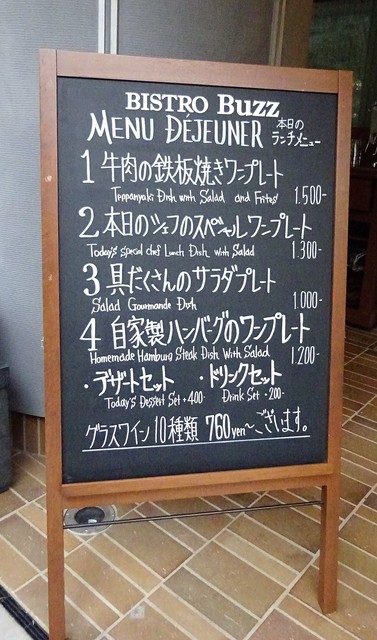 BISTRO BUZZ
MENU DÉJEUNER 本日のランチメニュー
1 牛肉の鉄板焼きワンプレート
Teppanyaki Dish with Salad and Frites! 1.500-
2 本日のシェフのスペシャルワンプレート
Today's special chef Lunch Dish with Salad 1.300-
3 具だくさんのサラダプレート
Salad Gourmande Dish 1.000-
4 自家製ハンバーグのワンプレート
Homemade Hamburg Steak Dish With Salad 1.200-
・デザートセット ・ドリンクセット
Today's Dessert Set +400- Drink Set -200-
グラスワイン10種類 760yen〜ございます。